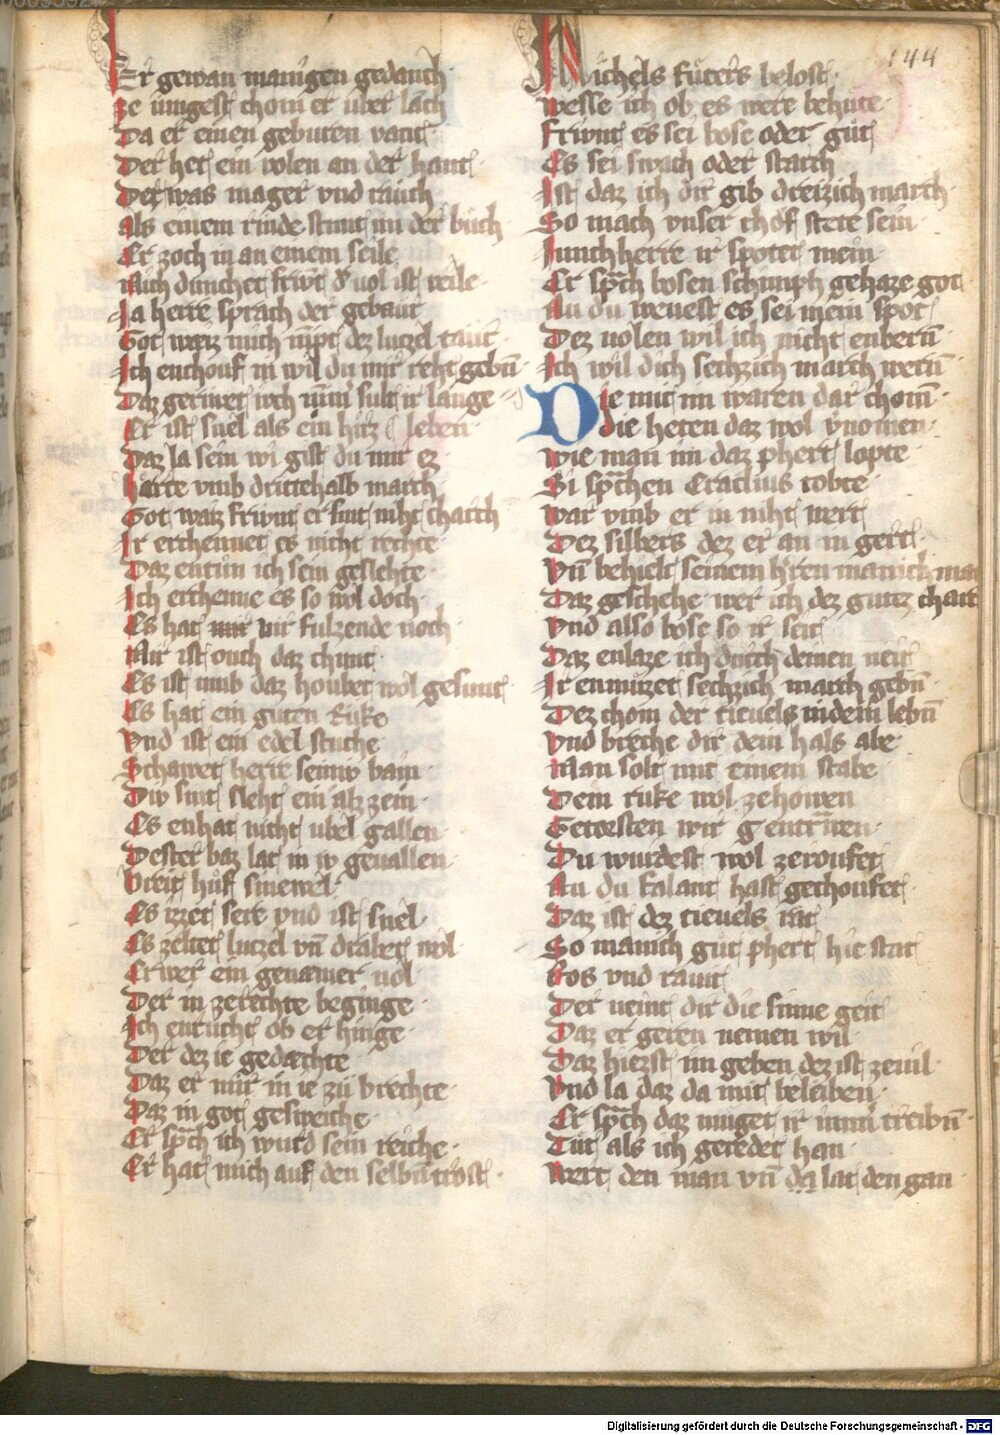 144
Er gewan manigen gedanch
Ze iungest chom er uber lach
Da er einen geburen vant
Der het ein volen an der hant
Der was mager vnd rauch
Als einem rinde stunt im der buch
Er zoch in an einem seile
Mich dunchet friunt d' uol ist veile
Ja herre sprach der gebaur
Got weiz mich
Ich enchouf in wil du mir reht gebn
Daz geriwet iuch sult ir lange
Er ist snel als ein hirz leben
Daz la sein wi gist du mir ez
Harte vmb drittehalb march
Got waiz friunt er sint niht charch
Ir erchennet es nicht rechte
Daz entun ich sein geslehte
Ich erchenne es so wol doch
Es hat vir fulzende noch
Mir ist ouch daz chunt
Es ist umb daz houbet wol gesunt
Es hat ein guten Ruke
Vnd ist ein edel stuche
Schawet herre seiniv bain
Div sint sleht ein als zein
Es enhat nicht ubel gallen
Dester baz lat in iv geuallen
Breit huf sinewel
Es izzet sere vnd ist snel
Es zeltet lutzel vn drabet wol
Er wer ein genæmer uol
Der in zerechte beginge
Ich enrucht ob er hinge
Der dez ie gedæchte
Daz er mir in ie zu brechte
Daz in got gesweiche
Er sprach ich wurd sein reiche
Er hat mich auf den selbn trost
Michels futers belost
Wesse ich ob es were behute
Friunt es sei bose oder gut
Es sei swach oder starch
Ist daz ich dir gib dreizich march
So mach vnser chof stete sein
Junchherre ir spotet mein
Er sprach bosen schimph gehaze got
Nu du wenest es sei mein spot
Dez uolen wil ich nicht enbern
Ich wil dich sechzich march wern
Die mit im waren dar chomn
die heten daz wol v'nomen
Wie man im daz phert lopte
Si sprachen Eraclius tobte
War vmb er in niht wert
Dez silbers dez er an in gert
Vn behielt seinem h'ren manich ma
Daz geschehe wer ich dez gutez charc
Vnd also bose so ir seit
Daz enlaze ich durch deinen neit
Ir enmuzet sechzich march gebn
Dez chom der tieuels in dein lebn
Vnd breche dir dein hals abe
Man solt mit einem stabe
Dem ruke wol zehowen
Getorsten wir
Du wurdest wol zeroufet
Nu du falant hast gechoufet
Daz ist dez tieuels rat
So manich gut phert hie stat
Ros vnd raumt
Der ueint dir die sinne geit
Daz er geren nemen wil
Daz hiezst im geben dez ist zeuil
Vnd la daz da mit beleiben
Er sprach daz muget ir treibn
Tut als ich geredet han
Wert den man vn lat den gan
Digitalisierung gefördert durch die Deutsche Forschungsgemeinschaft - DFG